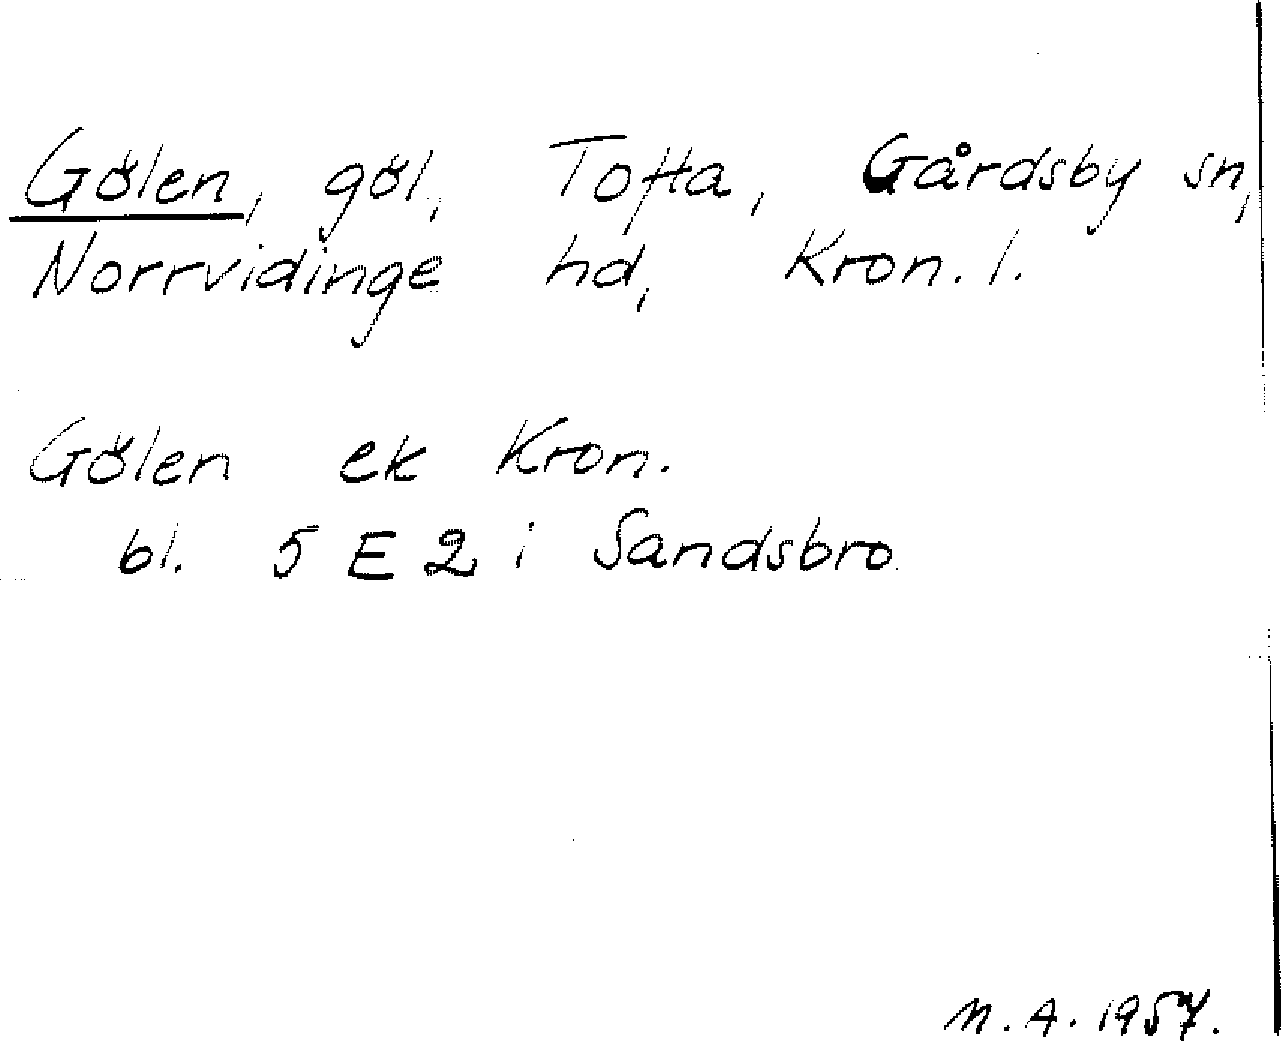 Gölen, göl, Tofta, Gårdsby sn,
Norrvidinge hd, Kron. l.
Gölen ek Kron.
bl. 5 E 2 i Sandsbro
M. A. 1957.